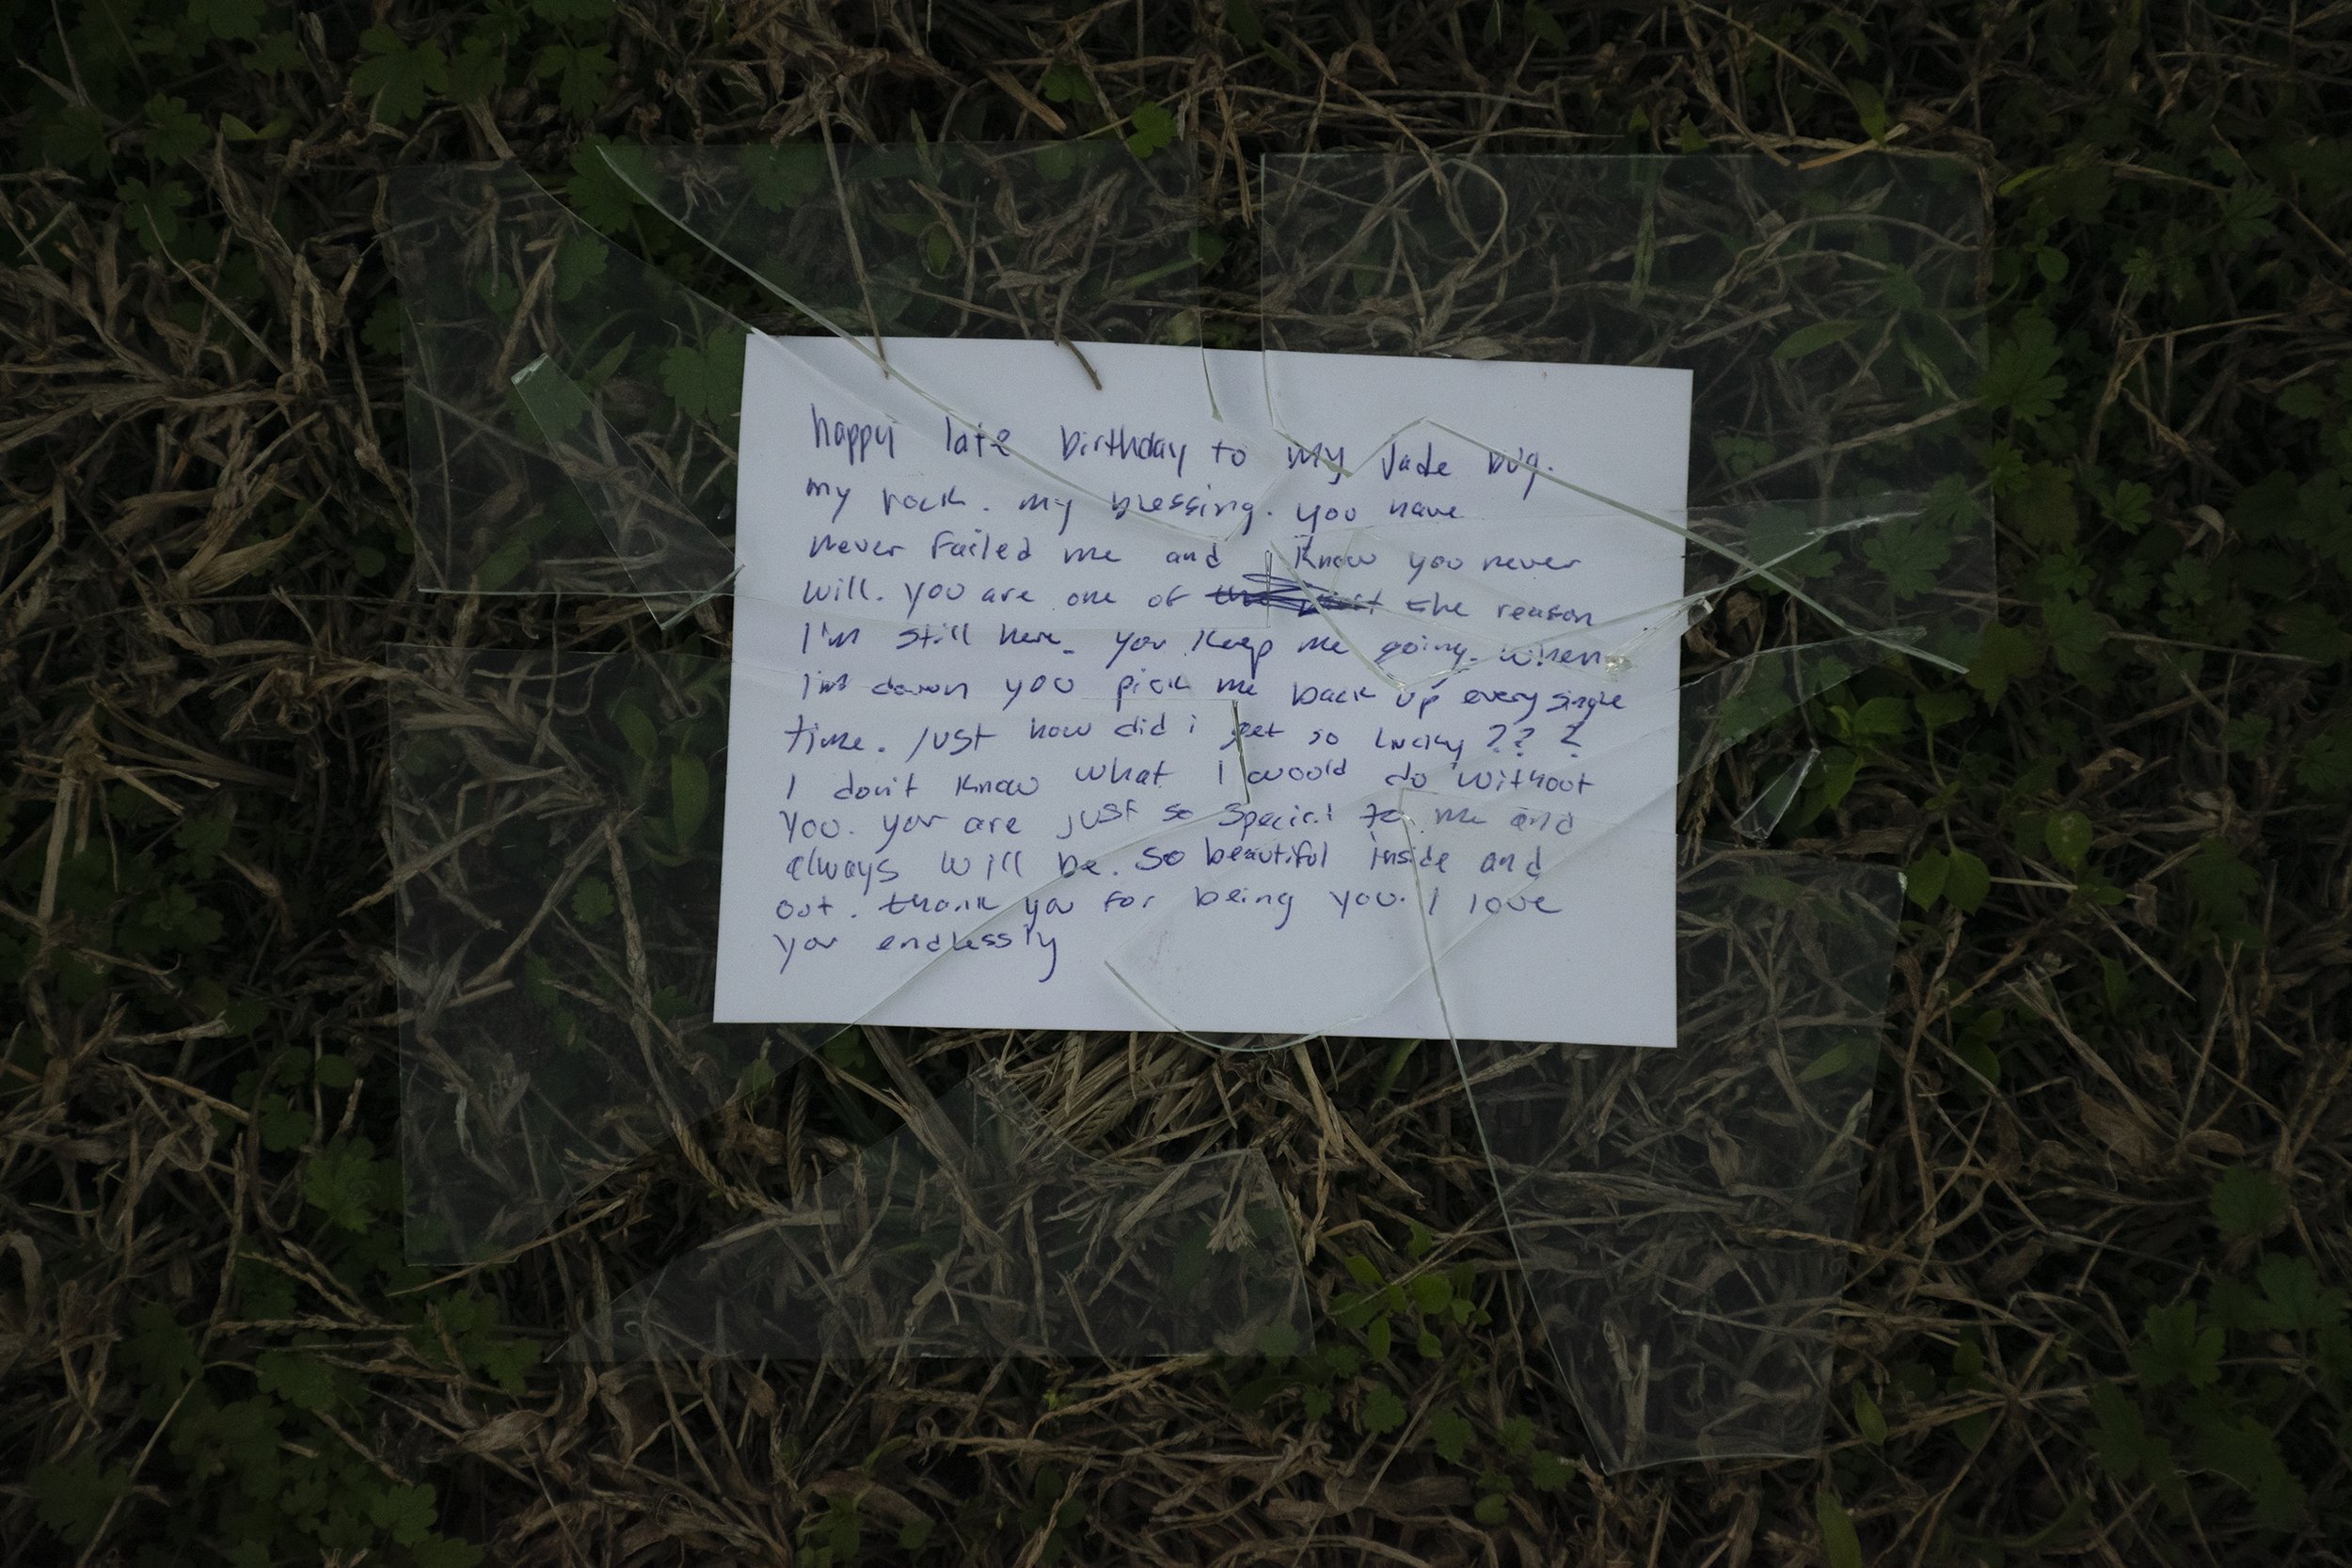 happy late birthday to my Jade bug.
my rock. my blessing. you have
never failed me and I know you never
will. you are one of the reason
I'm still here. you keep me going. when
I'm down you pick me back up every single
time. Just how did i get so lucky ???
I don't know what I would do without
you. you are just so special to me and
always will be. so beautiful inside and
out. thank you for being you. I love
you endlessly